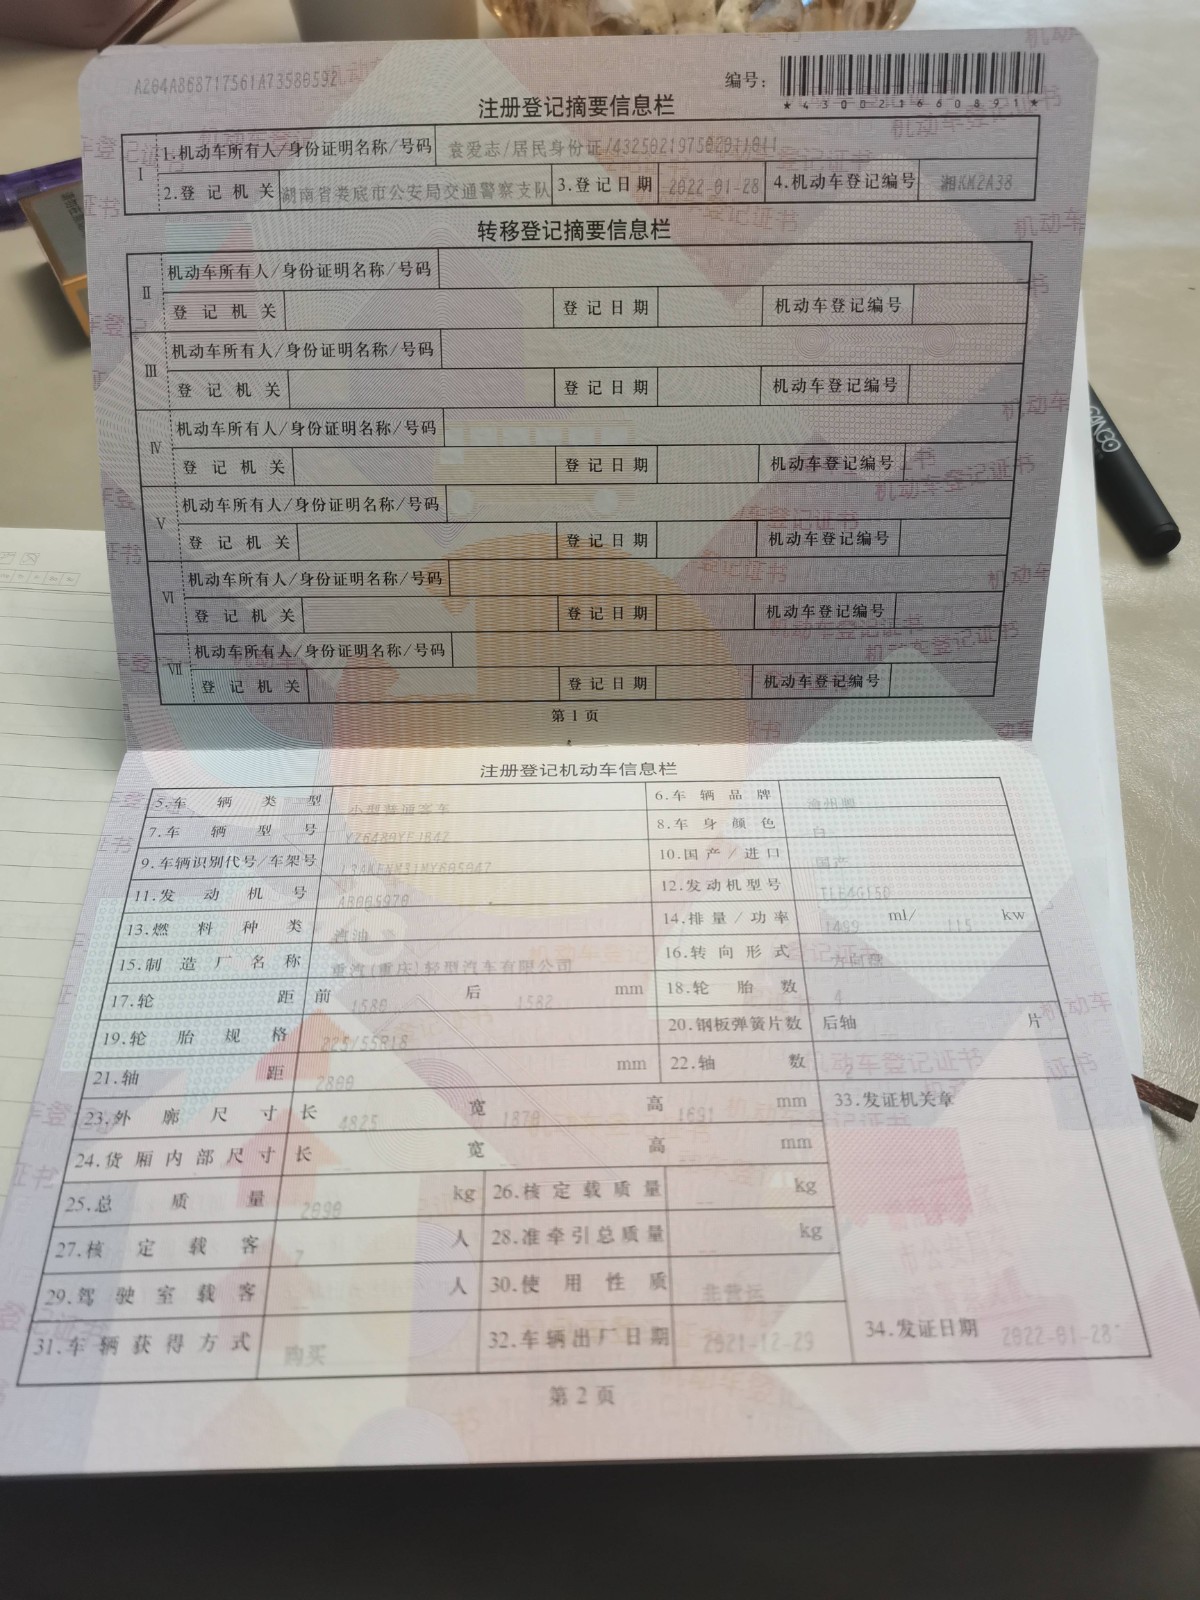 A204A868717561A73580592
编号：
★430021660891★
注册登记摘要信息栏
Ⅰ 1.机动车所有人/身份证明名称/号码 袁爱志/居民身份证/
2.登记机关 湖南省娄底市公安局交通警察支队 3.登记日期 2022-01-28 4.机动车登记编号 湘KM2A38
转移登记摘要信息栏
Ⅱ 机动车所有人/身份证明名称/号码
登记机关 登记日期 机动车登记编号
Ⅲ 机动车所有人/身份证明名称/号码
登记机关 登记日期 机动车登记编号
Ⅳ 机动车所有人/身份证明名称/号码
登记机关 登记日期 机动车登记编号
Ⅴ 机动车所有人/身份证明名称/号码
登记机关 登记日期 机动车登记编号
Ⅵ 机动车所有人/身份证明名称/号码
登记机关 登记日期 机动车登记编号
Ⅶ 机动车所有人/身份证明名称/号码
登记机关 登记日期 机动车登记编号
第1页
注册登记机动车信息栏
5.车辆类型 小型普通客车 6.车辆品牌
7.车辆型号 8.车身颜色 白
9.车辆识别代号/车架号 10.国产/进口 国产
11.发动机号 12.发动机型号
13.燃料种类 汽油 14.排量/功率 1499 ml/ 115 kw
15.制造厂名称 重汽(重庆)轻型汽车有限公司 16.转向形式 方向盘
17.轮距 前 1580 后 1582 mm 18.轮胎数 4
19.轮胎规格 225/55R18 20.钢板弹簧片数 后轴 片
21.轴距 2800 mm 22.轴数 2
23.外廓尺寸 长 4825 宽 1870 高 mm 33.发证机关章
24.货厢内部尺寸 长 宽 高 mm
25.总质量 2090 kg 26.核定载质量 -- kg
27.核定载客 7 人 28.准牵引总质量 -- kg
29.驾驶室载客 -- 人 30.使用性质 非营运
31.车辆获得方式 购买 32.车辆出厂日期 2021-12-29 34.发证日期 2022-01-28
第2页